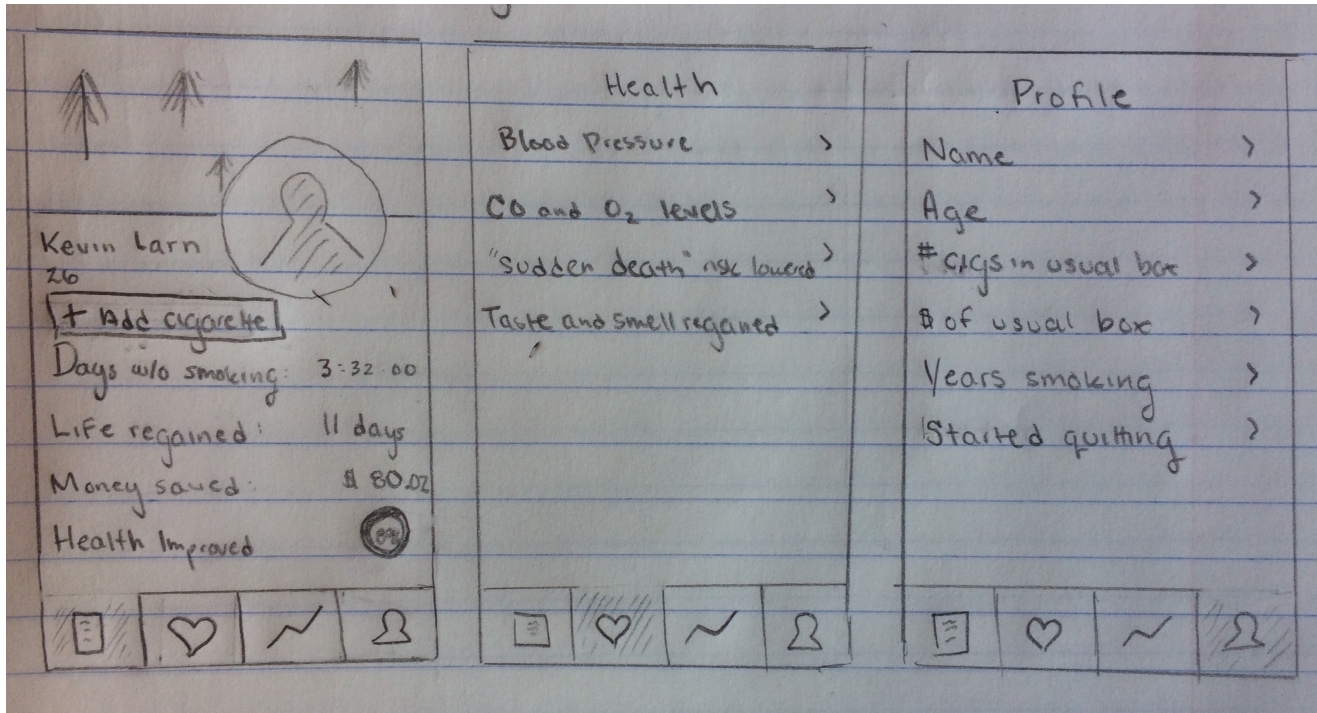 Kevin Larn
26
+ Add cigarette
Days w/o smoking: 3:32:00
Life regained: 11 days
Money saved: $ 80.02
Health Improved
Health
Blood Pressure >
CO and O₂ levels >
"sudden death" risk lowered >
Taste and smell regained >
Profile
Name >
Age >
# cigs in usual box >
$ of usual box >
Years smoking >
Started quitting >